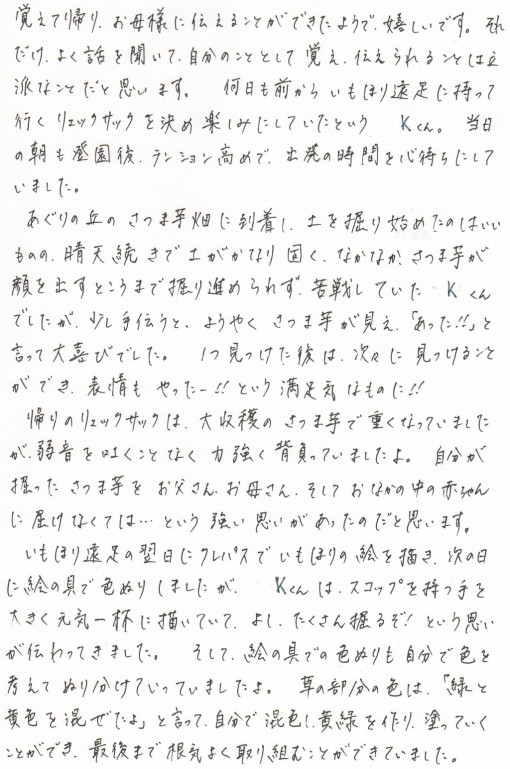 覚えて帰り、お母様に伝えることができたようで、嬉しいです。それ
だけ、よく話を聞いて、自分のこととして覚え、伝えられることは立
派なことだと思います。 何日も前からいもほり遠足に持って
行くリュックサックを決め楽しみにしていたという Kくん。当日
の朝も登園後、テンション高めで、出発の時間を心待ちにして
いました。
あぐりの丘のさつま芋畑に到着し、土を掘り始めたのはいい
ものの、晴天続きで土がかなり固く、なかなか、さつま芋が
顔を出すところまで掘り進められず、苦戦していた Kくん
でしたが、少し手伝うと、ようやくさつま芋が見え、「あった!!」と
言って大喜びでした。 1つ見つけた後は、次々に見つけること
ができ、表情もやったー!!という満足気なものに!!
帰りのリュックサックは、大収穫のさつま芋で重くなっていました
が、弱音を吐くことなく力強く背負っていましたよ。 自分が
掘ったさつま芋をお父さん、お母さん、そしておなかの中の赤ちゃん
に届けなくては…という強い思いがあったのだと思います。
いもほり遠足の翌日にクレパスでいもほりの絵を描き、次の日
に絵の具で色ぬりしましたが、 Kくんは、スコップを持つ手を
大きく元気一杯に描いていて、よし、たくさん掘るぞ!という思い
が伝わってきました。 そして、絵の具での色ぬりも自分で色を
考えてぬり分けていっていましたよ。 草の部分の色は、「緑と
黄色を混ぜたよ」と言って、自分で混色し、黄緑を作り、塗っていく
ことができ、最後まで根気よく取り組むことができていました。